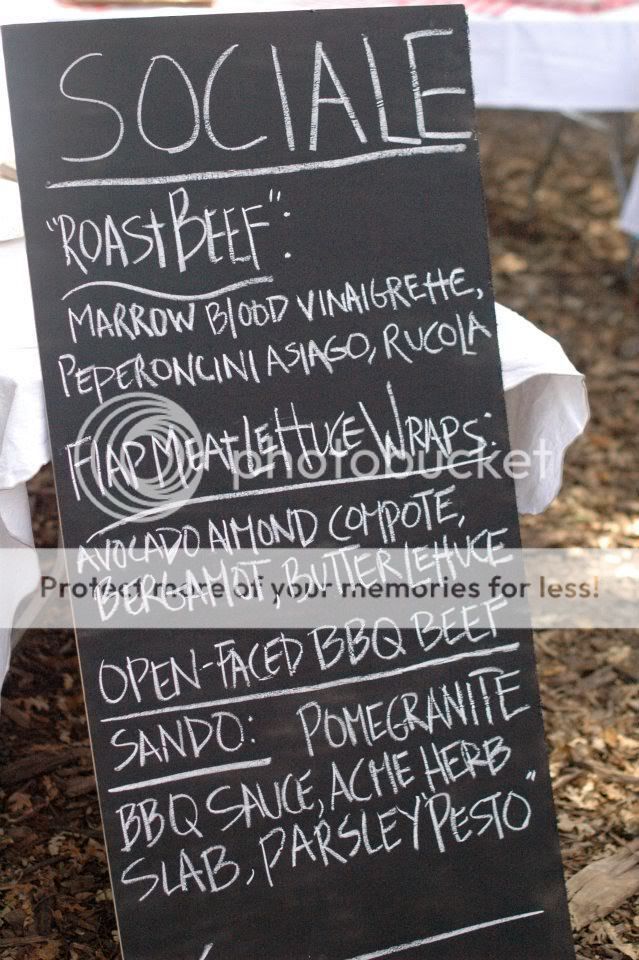 SOCIALE
"ROAST BEEF":
MARROW BLOOD VINAIGRETTE,
PEPERONCINI ASIAGO, RUCOLA
FLAP MEAT LETTUCE WRAPS:
photobucket
AVOCADO ALMOND COMPOTE,
Protect more of your memories for less!
BERGAMOT, BUTTER LETTUCE
OPEN-FACED BBQ BEEF
SANDO: POMEGRANITE
BBQ SAUCE, ACME HERB
SLAB, PARSLEY "PESTO"